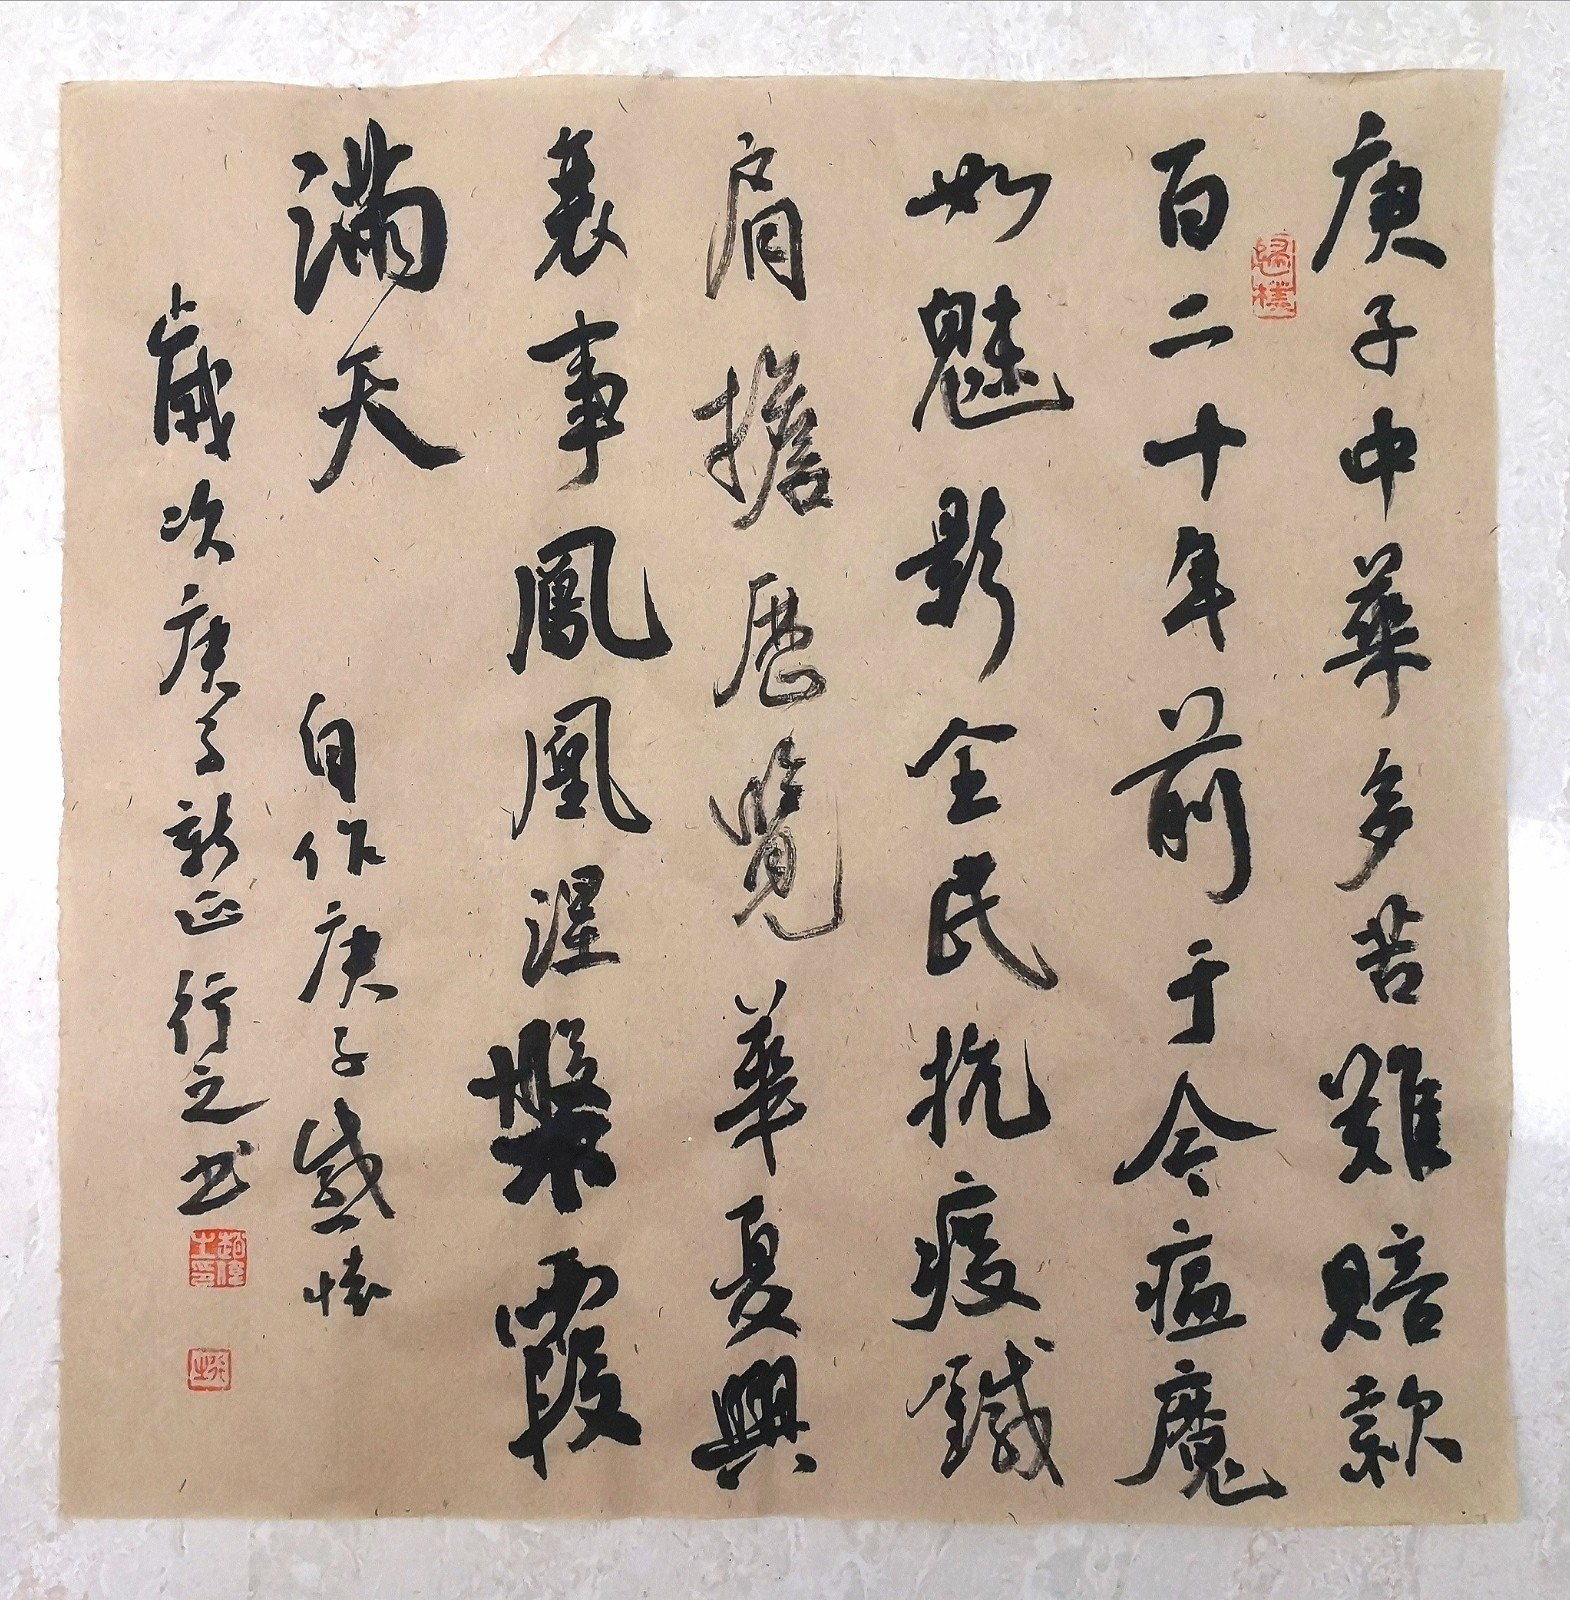 庚子中華多苦難賠款
百二十年前于今瘟魔
如魅影全民抗疫鐵
肩擔歷覽華夏興
衰事鳳凰涅槃霞
滿天
自作庚子感懷
歲次庚子新正行之书